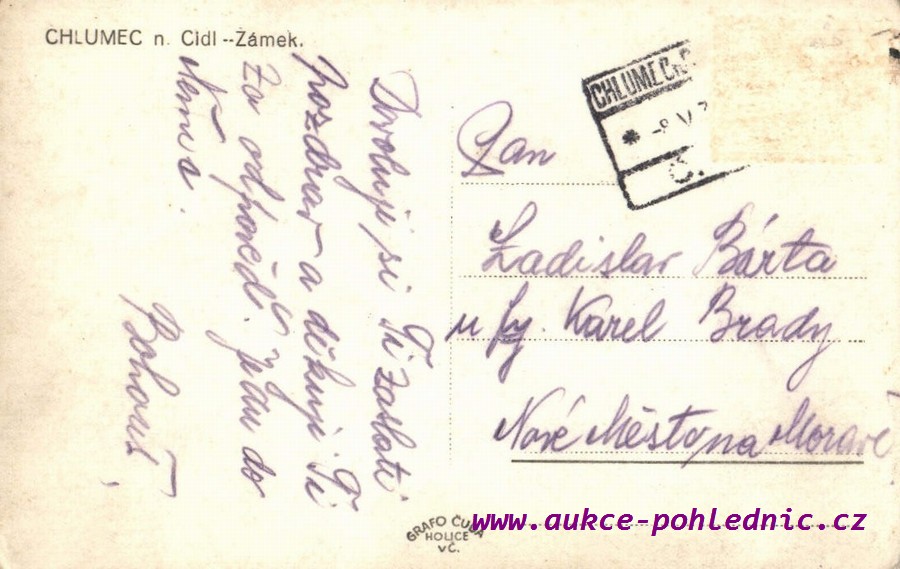 CHLUMEC n. Cidl--Žámek.
Dovoluji si Ti zaslati
pozdrav a děkuji Ti
za odpověď. Jedu do
Něm s.
Bohouš,
CHLUMEC
-8.V.
Pan
Ladislav Bárta
u fy. Karel Brady
Nové Město na Moravě
GRAFO ČUDA
HOLICE
VČ.
www.aukce-pohlednic.cz